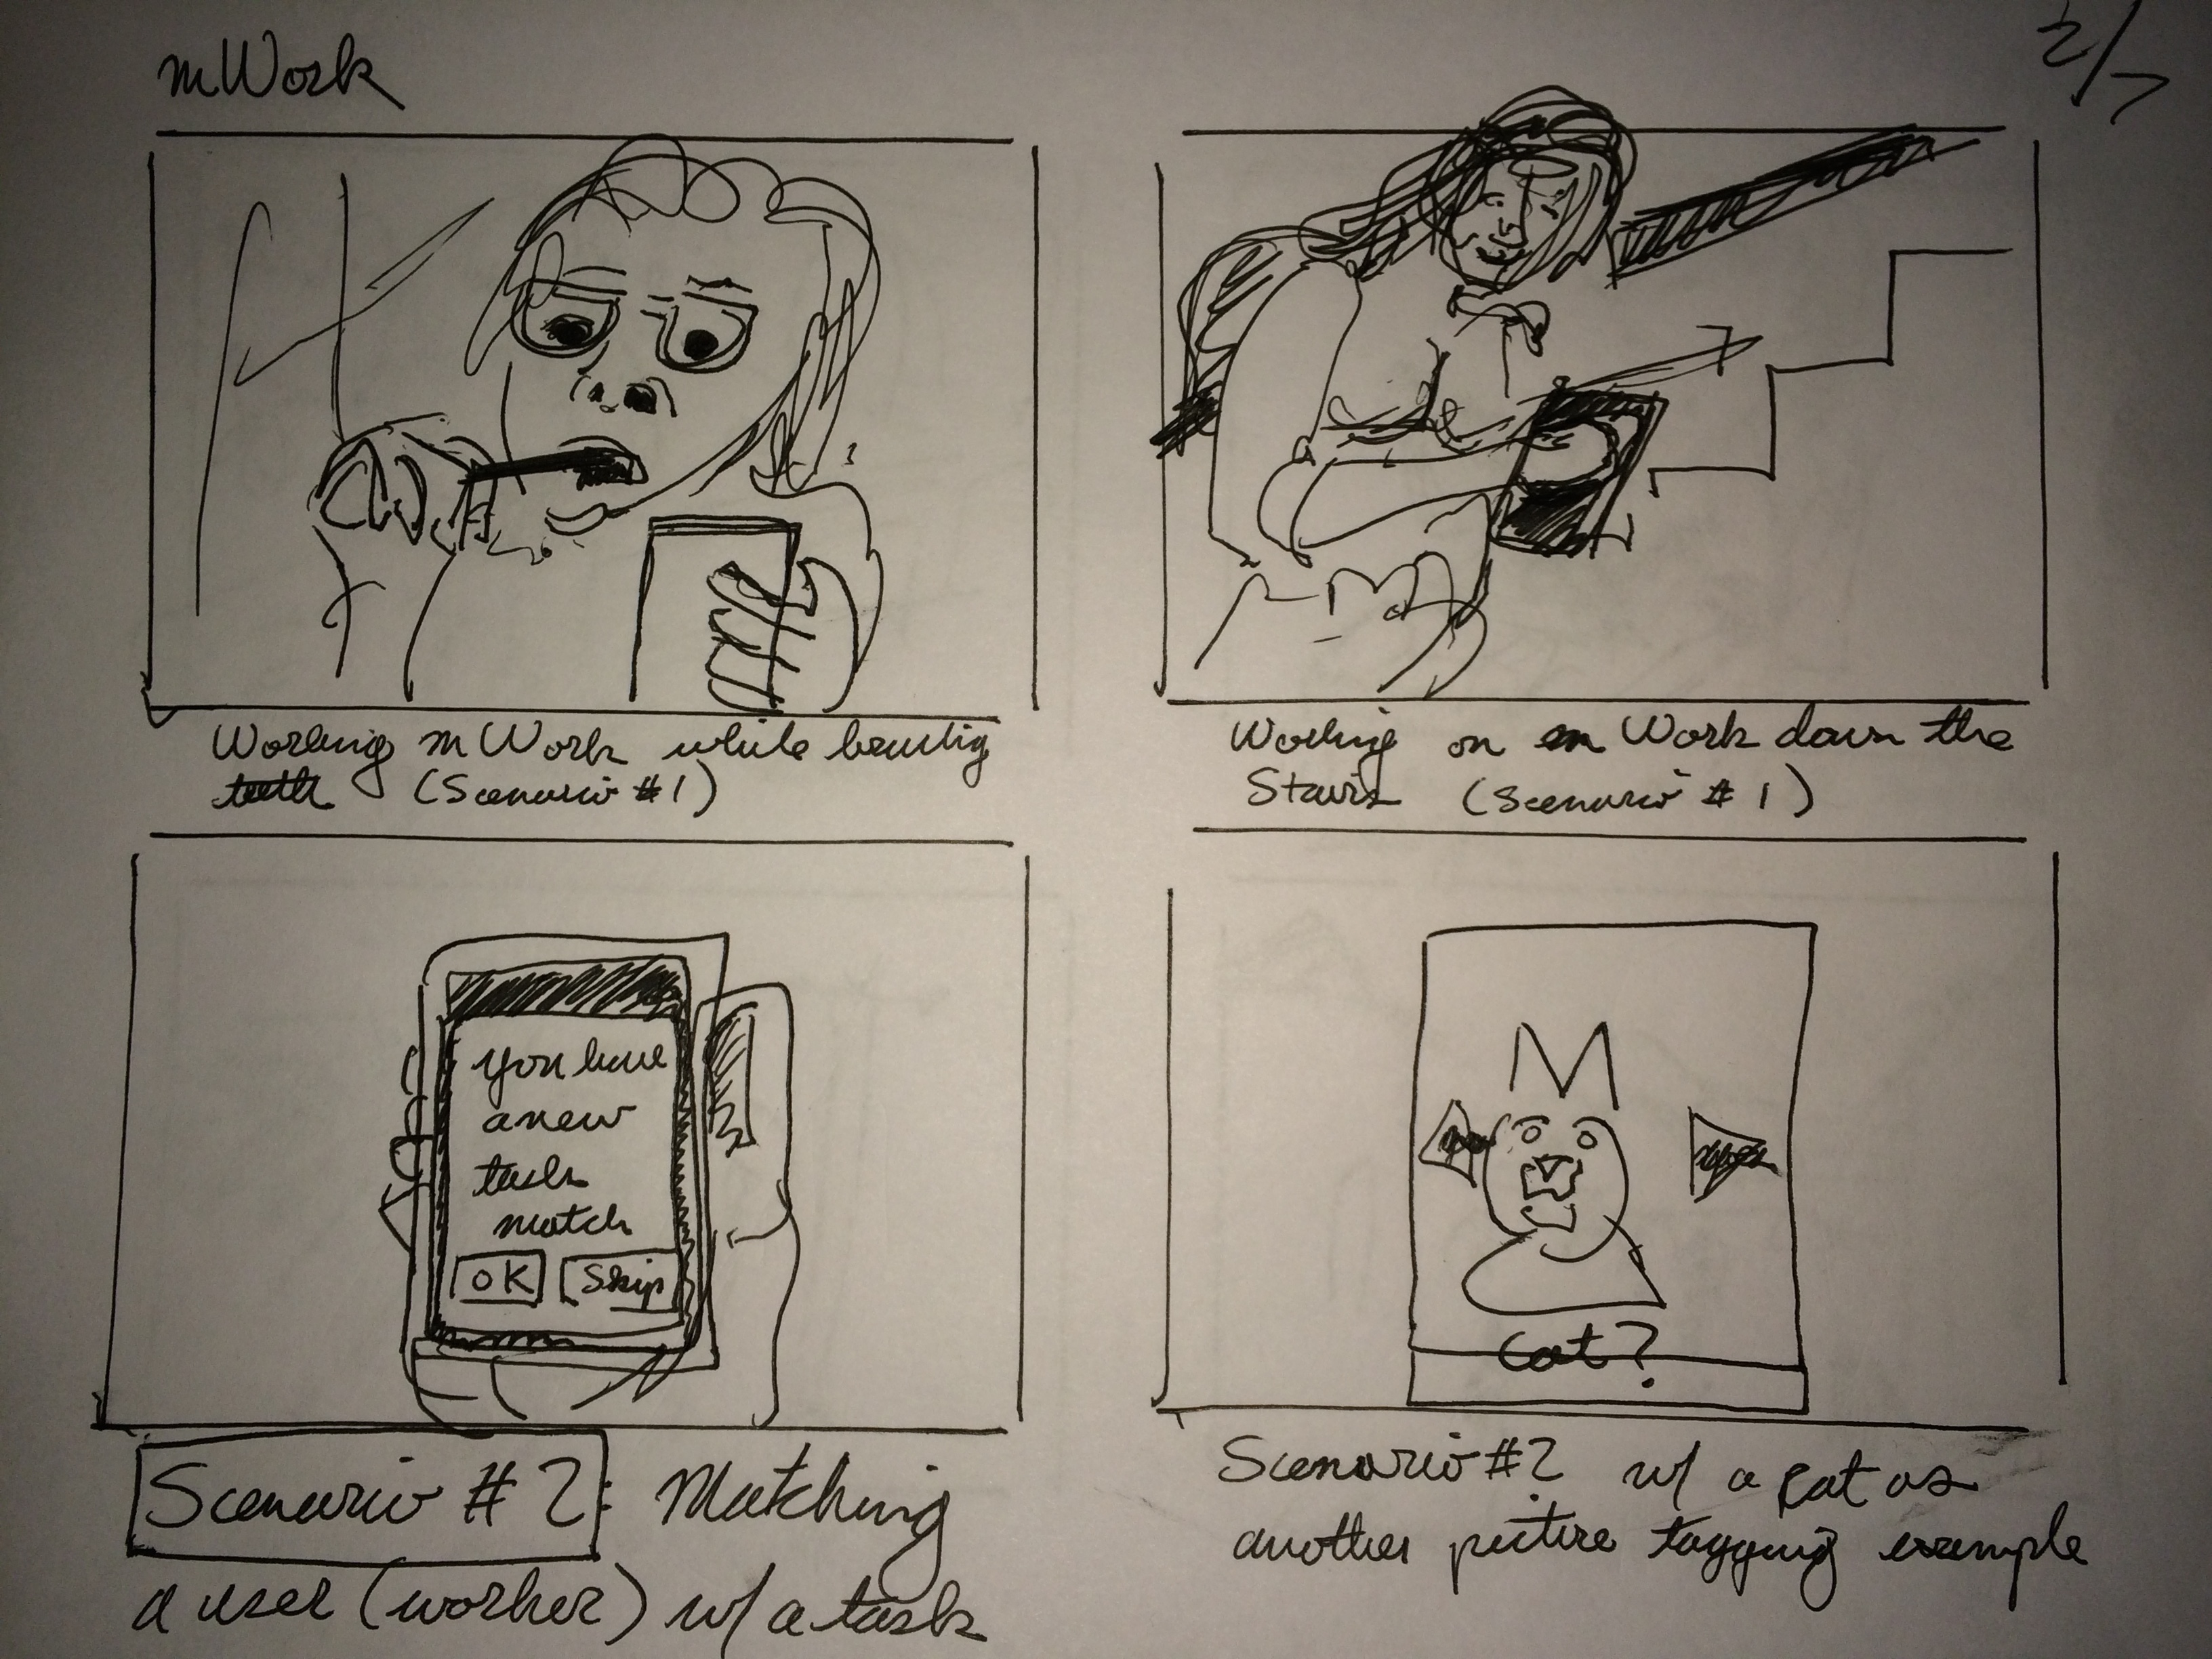 mWork
2/7
Working mWork while brushing
teeth (Scenario #1)
Working on m Work down the
Stairs (Scenario #1)
you have
a new
task
match
OK Skip
Cat?
Scenario #2: Matching
a user (worker) w/ a task
Scenario #2 w/ a cat as
another picture tagging example